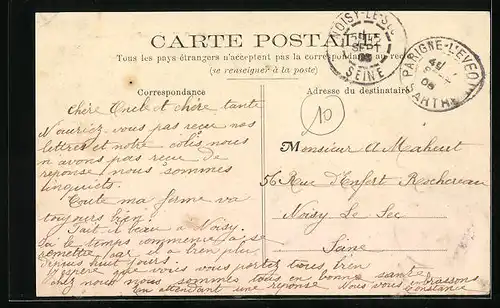 CARTE POSTALE
Tous les pays étrangers n'acceptent pas la correspondance au recto
(se renseigner à la poste)
Correspondance
Adresse du destinataire
NOISY-LE-SEC
SEPT
SEINE
PARIGNÉ-L'ÉVÊQUE
SARTHE
10
Chère Oncle et chère tante
N'auriez vous pas reçu nos
lettres et notre colis nous
n avons pas reçu de
reponse, nous sommes
inquiets.
Toute ma ferme va
toujours bien.
Fait il beau a Noisy.
Ja le temps commence a se
remettre car il a bien plu
depuis huit jours.
J'espère que vous vous portez tous bien
Chez nous nous sommes tous en bonne santé
En attendant une reponse Nous vous embrassons
Constance
Monsieur A Maheut
56 Rue D'Enfert Rochereau
Noisy Le Sec
Seine